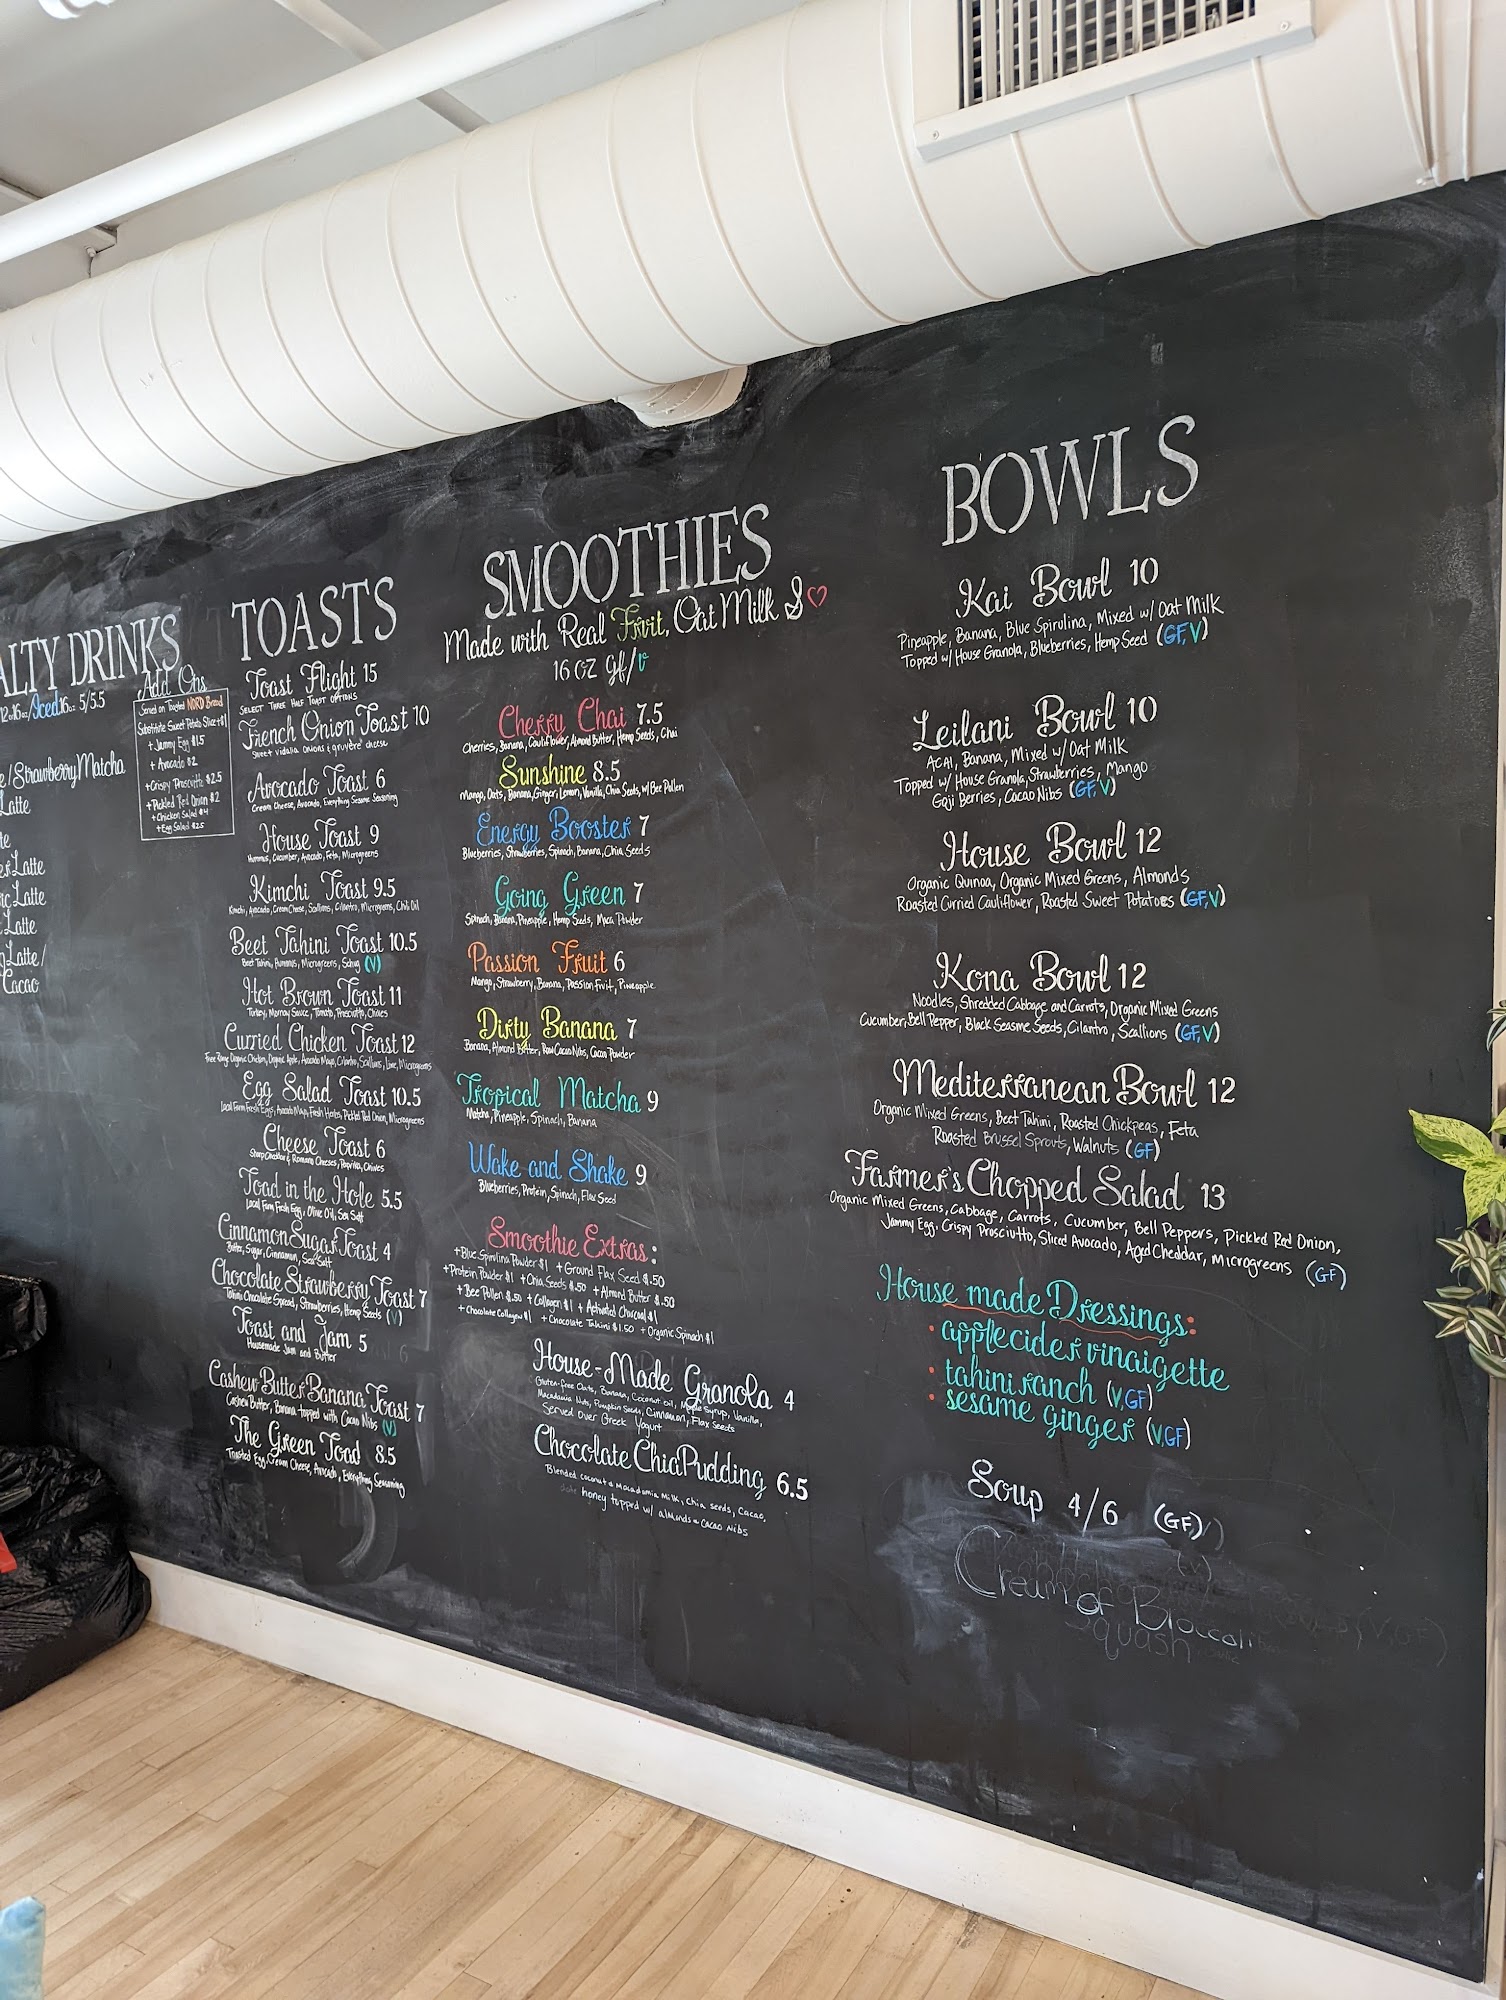 ALTY DRINKS
12oz/16oz/Iced 16oz 5/5.5
e/Strawberry Matcha
Latte
te
er Latte
ic Latte
Latte
Latte/
Cacao
Add Ons
Served on Toasted NORD Bread
Substitute Sweet Potato Slice +$1
+ Jammy Egg $1.5
+ Avocado $2
+Crispy Prosciutto $2.5
+Pickled Red Onion $2
+ Chicken Salad $4
+ Egg Salad $2.5
TOASTS
Toast Flight 15
SELECT THREE HALF TOAST OPTIONS
French Onion Toast 10
Sweet vidalia onions & gruyère cheese
Avocado Toast 6
Cream Cheese, Avocado, Everything Sesame Seasoning
House Toast 9
Hummus, Cucumber, Avocado, Feta, Microgreens
Kimchi Toast 9.5
Kimchi, Avocado, Cream Cheese, Scallions, Cilantro, Microgreens, Chili Oil
Beet Tahini Toast 10.5
Beet Tahini, Hummus, Microgreens, Schug (V)
Hot Brown Toast 11
Turkey, Mornay Sauce, Tomato, Prosciutto, Chives
Curried Chicken Toast 12
Free Range Organic Chicken, Organic Apple, Avocado Mayo, Cilantro, Scallions, Lime, Microgreens
Egg Salad Toast 10.5
Local Farm Fresh Eggs, Avocado Mayo, Fresh Herbs, Pickled Red Onion, Microgreens
Cheese Toast 6
Sharp Cheddar & Romano Cheeses, Paprika, Chives
Toad in the Hole 5.5
Local Farm Fresh Egg, Olive Oil, Sea Salt
Cinnamon Sugar Toast 4
Butter, Sugar, Cinnamon, Sea Salt
Chocolate Strawberry Toast 7
Tahini Chocolate Spread, Strawberries, Hemp Seeds (V)
Toast and Jam 5
Housemade Jam and Butter
Cashew Butter Banana Toast 7
Cashew Butter, Banana topped with Cacao Nibs (V)
The Green Toad 8.5
Toasted Egg, Cream Cheese, Avocado, Everything Seasoning
SMOOTHIES
Made with Real Fruit, Oat Milk & ♡
16 OZ gf/v
Cherry Chai 7.5
Cherries, Banana, Cauliflower, Almond Butter, Hemp Seeds, Chai
Sunshine 8.5
Mango, Oats, Banana, Ginger, Lemon, Vanilla, Chia Seeds, w/ Bee Pollen
Energy Booster 7
Blueberries, Strawberries, Spinach, Banana, Chia Seeds
Going Green 7
Spinach, Banana, Pineapple, Hemp Seeds, Maca Powder
Passion Fruit 6
Mango, Strawberry, Banana, Passion Fruit, Pineapple
Dirty Banana 7
Banana, Almond Butter, Raw Cacao Nibs, Cacao Powder
Tropical Matcha 9
Matcha, Pineapple, Spinach, Banana
Wake and Shake 9
Blueberries, Protein, Spinach, Flax Seed
Smoothie Extras:
+Blue Spirulina Powder $1 + Ground Flax Seed $.50
+Protein Powder $1 + Chia Seeds $.50 + Almond Butter $.50
+ Bee Pollen $.50 + Collagen $1 + Activated Charcoal $1
+ Chocolate Collagen $1 + Chocolate Tahini $1.50 + Organic Spinach $1
House-Made Granola 4
Gluten-free Oats, Banana, Coconut Oil, Maple Syrup, Vanilla,
Macadamia Nuts, Pumpkin Seeds, Cinnamon, Flax Seeds
Served Over Greek Yogurt
Chocolate Chia Pudding 6.5
Blended coconut & Macadamia Milk, Chia seeds, Cacao,
honey topped w/ almonds & cacao nibs
BOWLS
Kai Bowl 10
Pineapple, Banana, Blue Spirulina, Mixed w/ Oat Milk
Topped w/ House Granola, Blueberries, Hemp Seed (GF, V)
Leilani Bowl 10
ACAI, Banana, Mixed w/ Oat Milk
Topped w/ House Granola, Strawberries, Mango
Goji Berries, Cacao Nibs (GF, V)
House Bowl 12
Organic Quinoa, Organic Mixed Greens, Almonds
Roasted Curried Cauliflower, Roasted Sweet Potatoes (GF, V)
Kona Bowl 12
Noodles, Shredded Cabbage and Carrots, Organic Mixed Greens
Cucumber, Bell Pepper, Black Seasme Seeds, Cilantro, Scallions (GF, V)
Mediterranean Bowl 12
Organic Mixed Greens, Beet Tahini, Roasted Chickpeas, Feta
Roasted Brussel Sprouts, Walnuts (GF)
Farmer's Chopped Salad 13
Organic Mixed Greens, Cabbage, Carrots, Cucumber, Bell Peppers, Pickled Red Onion,
Jammy Egg, Crispy Prosciutto, Sliced Avocado, Aged Cheddar, Microgreens (GF)
House made Dressings:
• apple cider vinaigette
• tahini ranch (V, GF)
• sesame ginger (V, GF)
Soup 4/6 (GF)
Cream of Broccoli
Squash